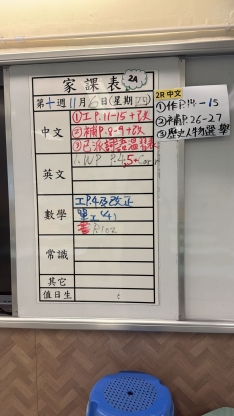 家課表 2A
第十週 11月6日(星期四)
中文
①工P.11-15+改
②補P.8-9+改
③已派
英文
1. WP P.4,5+Corr
數學
工P.4及改正
單工(4)
書P.102
常識
其它
值日生
2R 中文
①作P.14-15
②補P.26-27
③歷史人物選舉